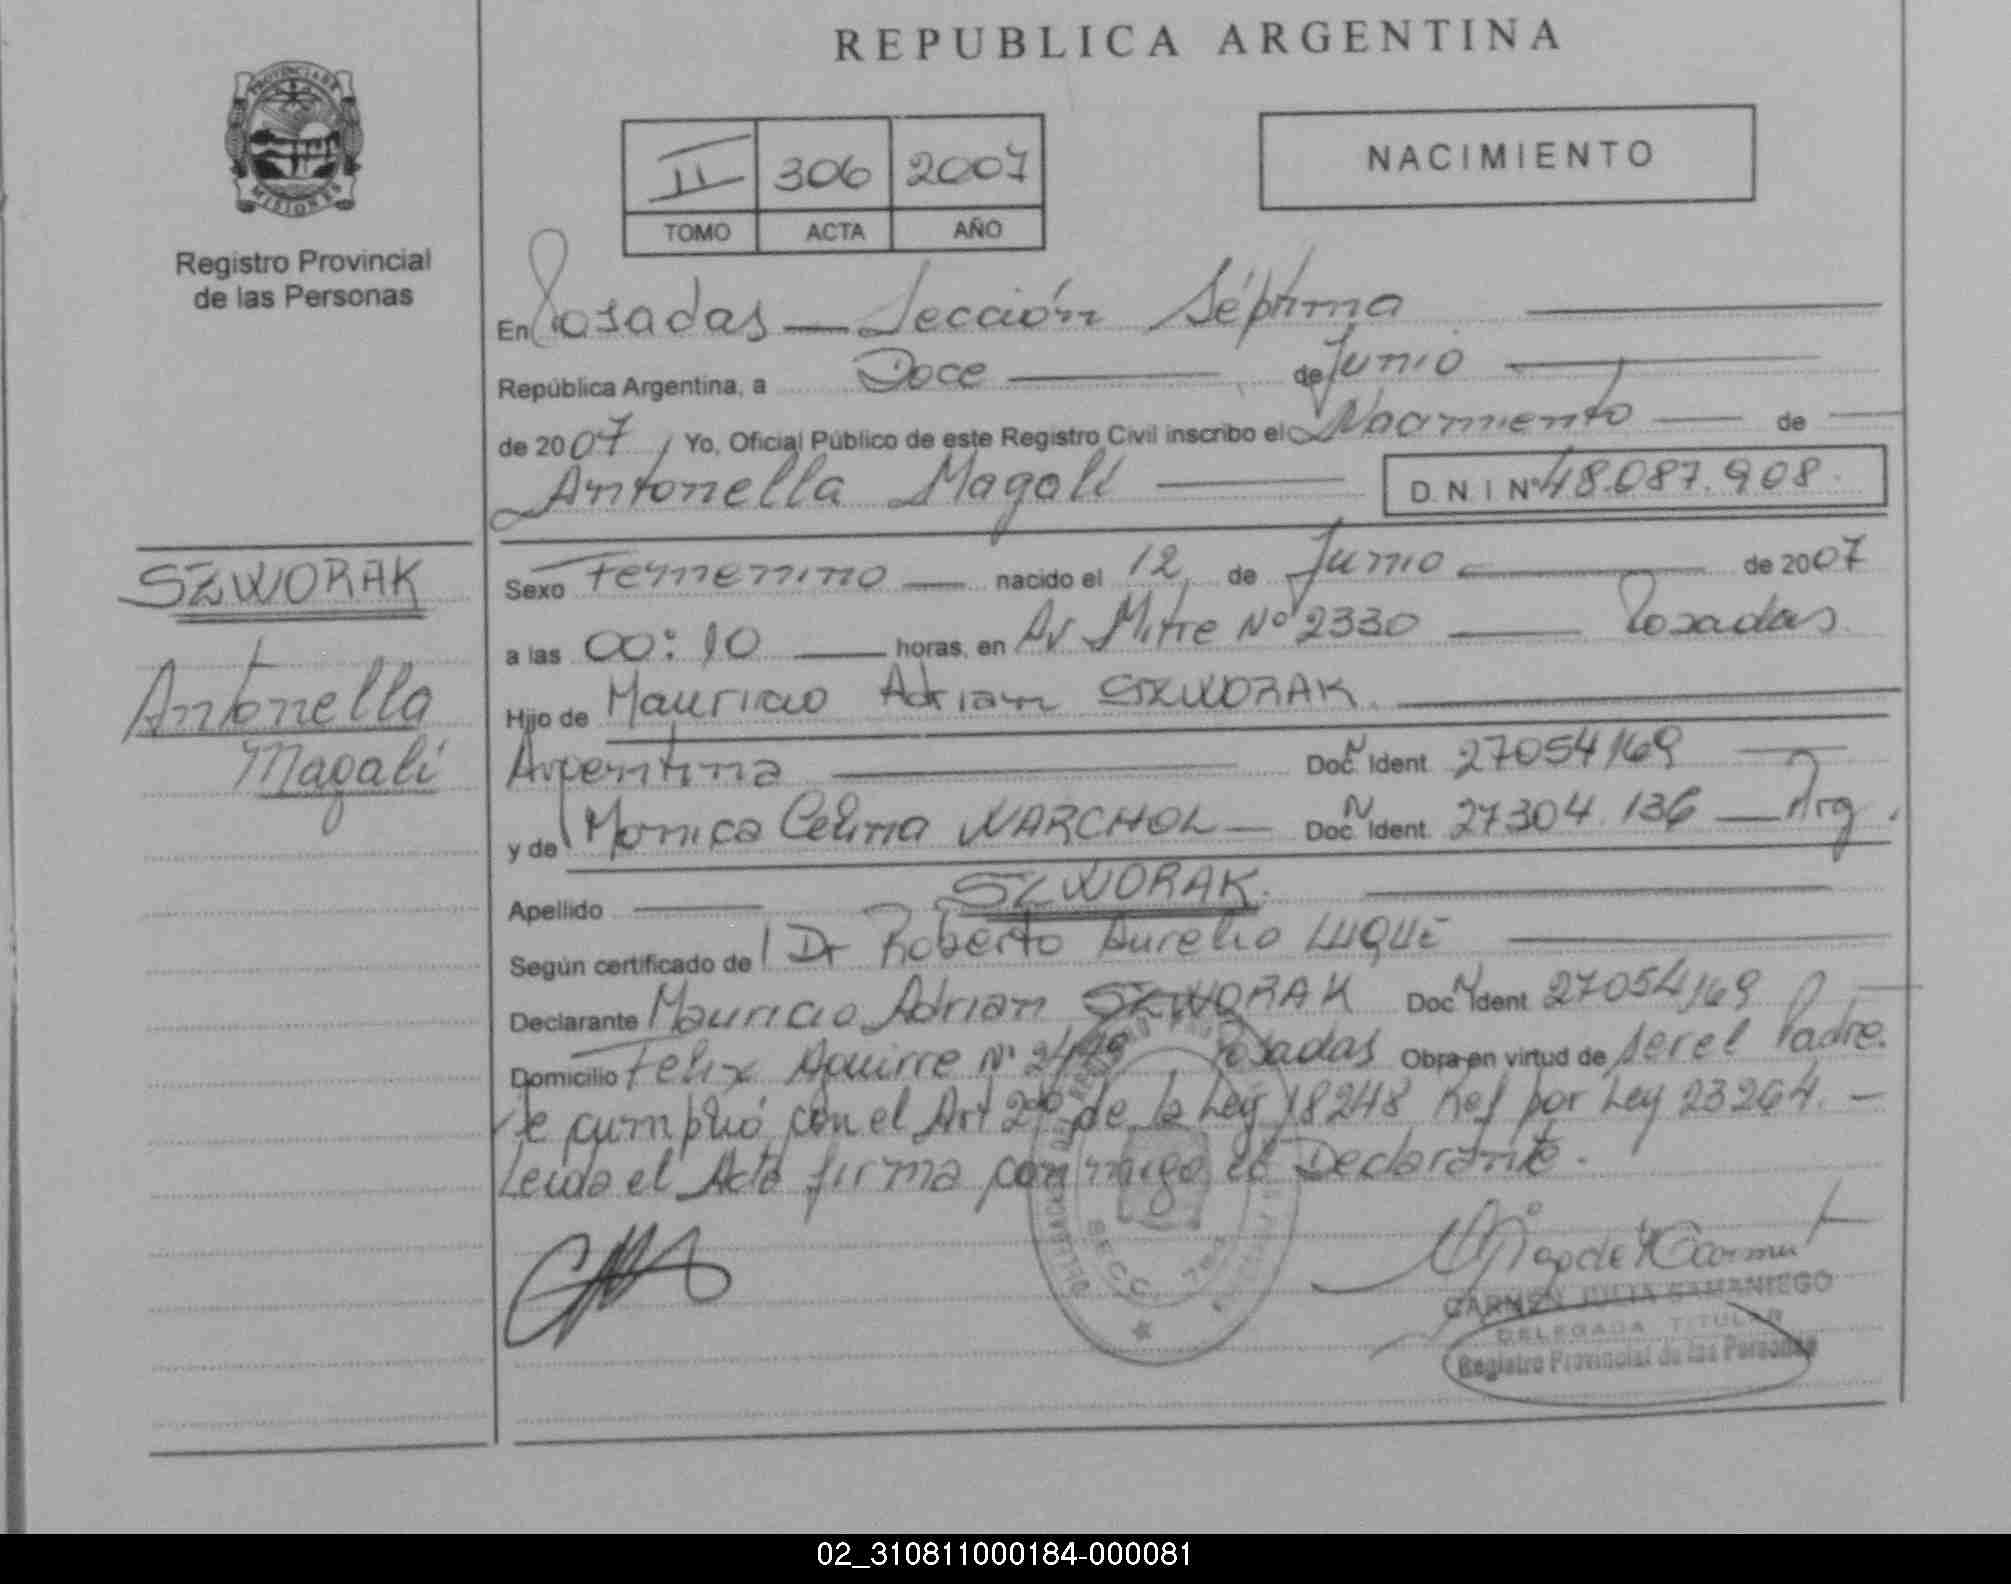 REPUBLICA ARGENTINA
PROVINCIA DE
MISIONES
Registro Provincial
de las Personas
II 306 2007
TOMO ACTA AÑO
NACIMIENTO
En Posadas — Sección Séptima
República Argentina, a Doce de Junio
de 2007, Yo, Oficial Público de este Registro Civil inscribo el Nacimiento de
Antonella Magali D.N.I Nº 48.087.908.
SZWORAK
Antonella
Magali
Sexo Femenino nacido el 12 de Junio de 2007
a las 00:10 horas, en Av Mitre Nº 2330 Posadas.
Hijo de Mauricio Adrian SZWORAK.
Argentina Doc. Ident. N 27054169
y de Monica Celina MARCHOL — Doc. Ident. N 27304.136 — Arg.
Apellido SZWORAK.
Según certificado de Dr Roberto Aurelio LUQUE
Declarante Mauricio Adrian SZWORAK Doc. Ident. N 27054169
Domicilio Felix Aguirre Nº Posadas Obra en virtud de ser el Padre.
Se cumplió con el Art 2do de la Ley 18248 Ref por Ley 23264. —
Leida el Acta firma conmigo el Declarante.
SECC. 7ma
CARMEN JULIA SAMANIEGO
DELEGADA TITULAR
Registro Provincial de las Personas
02_310811000184-000081